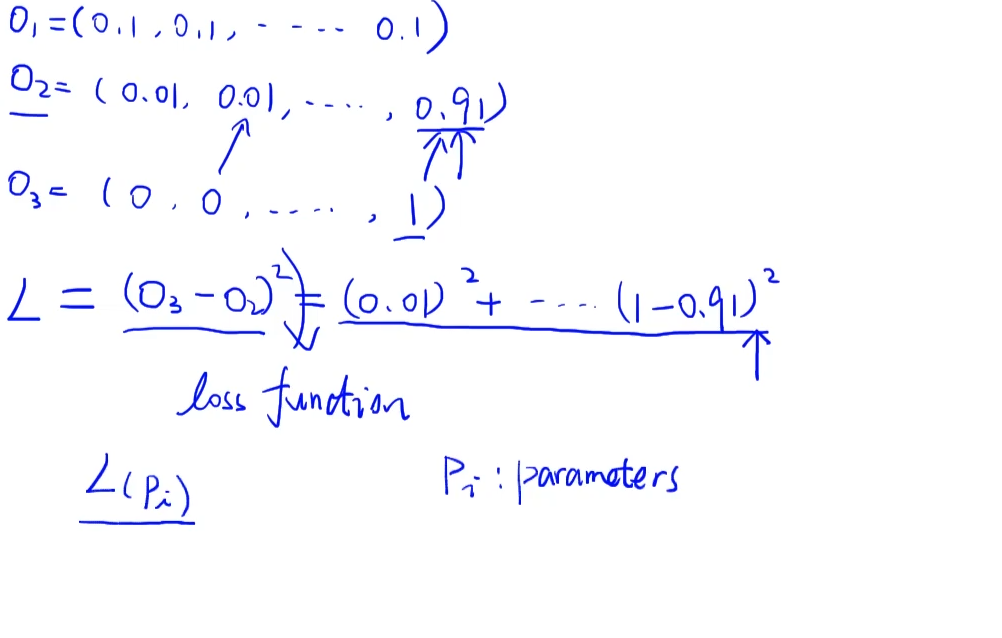 O₁ = (0.1, 0.1, - - - - - 0.1)
O₂ = (0.01, 0.01, - - - - · · , 0.91)
O₃ = (0, 0, - - - · · , 1)
L = (O₃ - O₂)² = (0.01)² + - - - · · (1 - 0.91)²
loss function
L(Pᵢ) Pᵢ : parameters